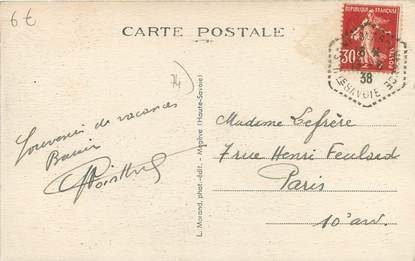 6€
CARTE POSTALE
RÉPUBLIQUE FRANÇAISE
30c
38
HTE SAVOIE
74
Souvenir de vacances
L. Morand, phot.-édit. - Megève (Haute-Savoie)
Madame Lefrère
7 rue Henri Feulard
Paris
10e arr.